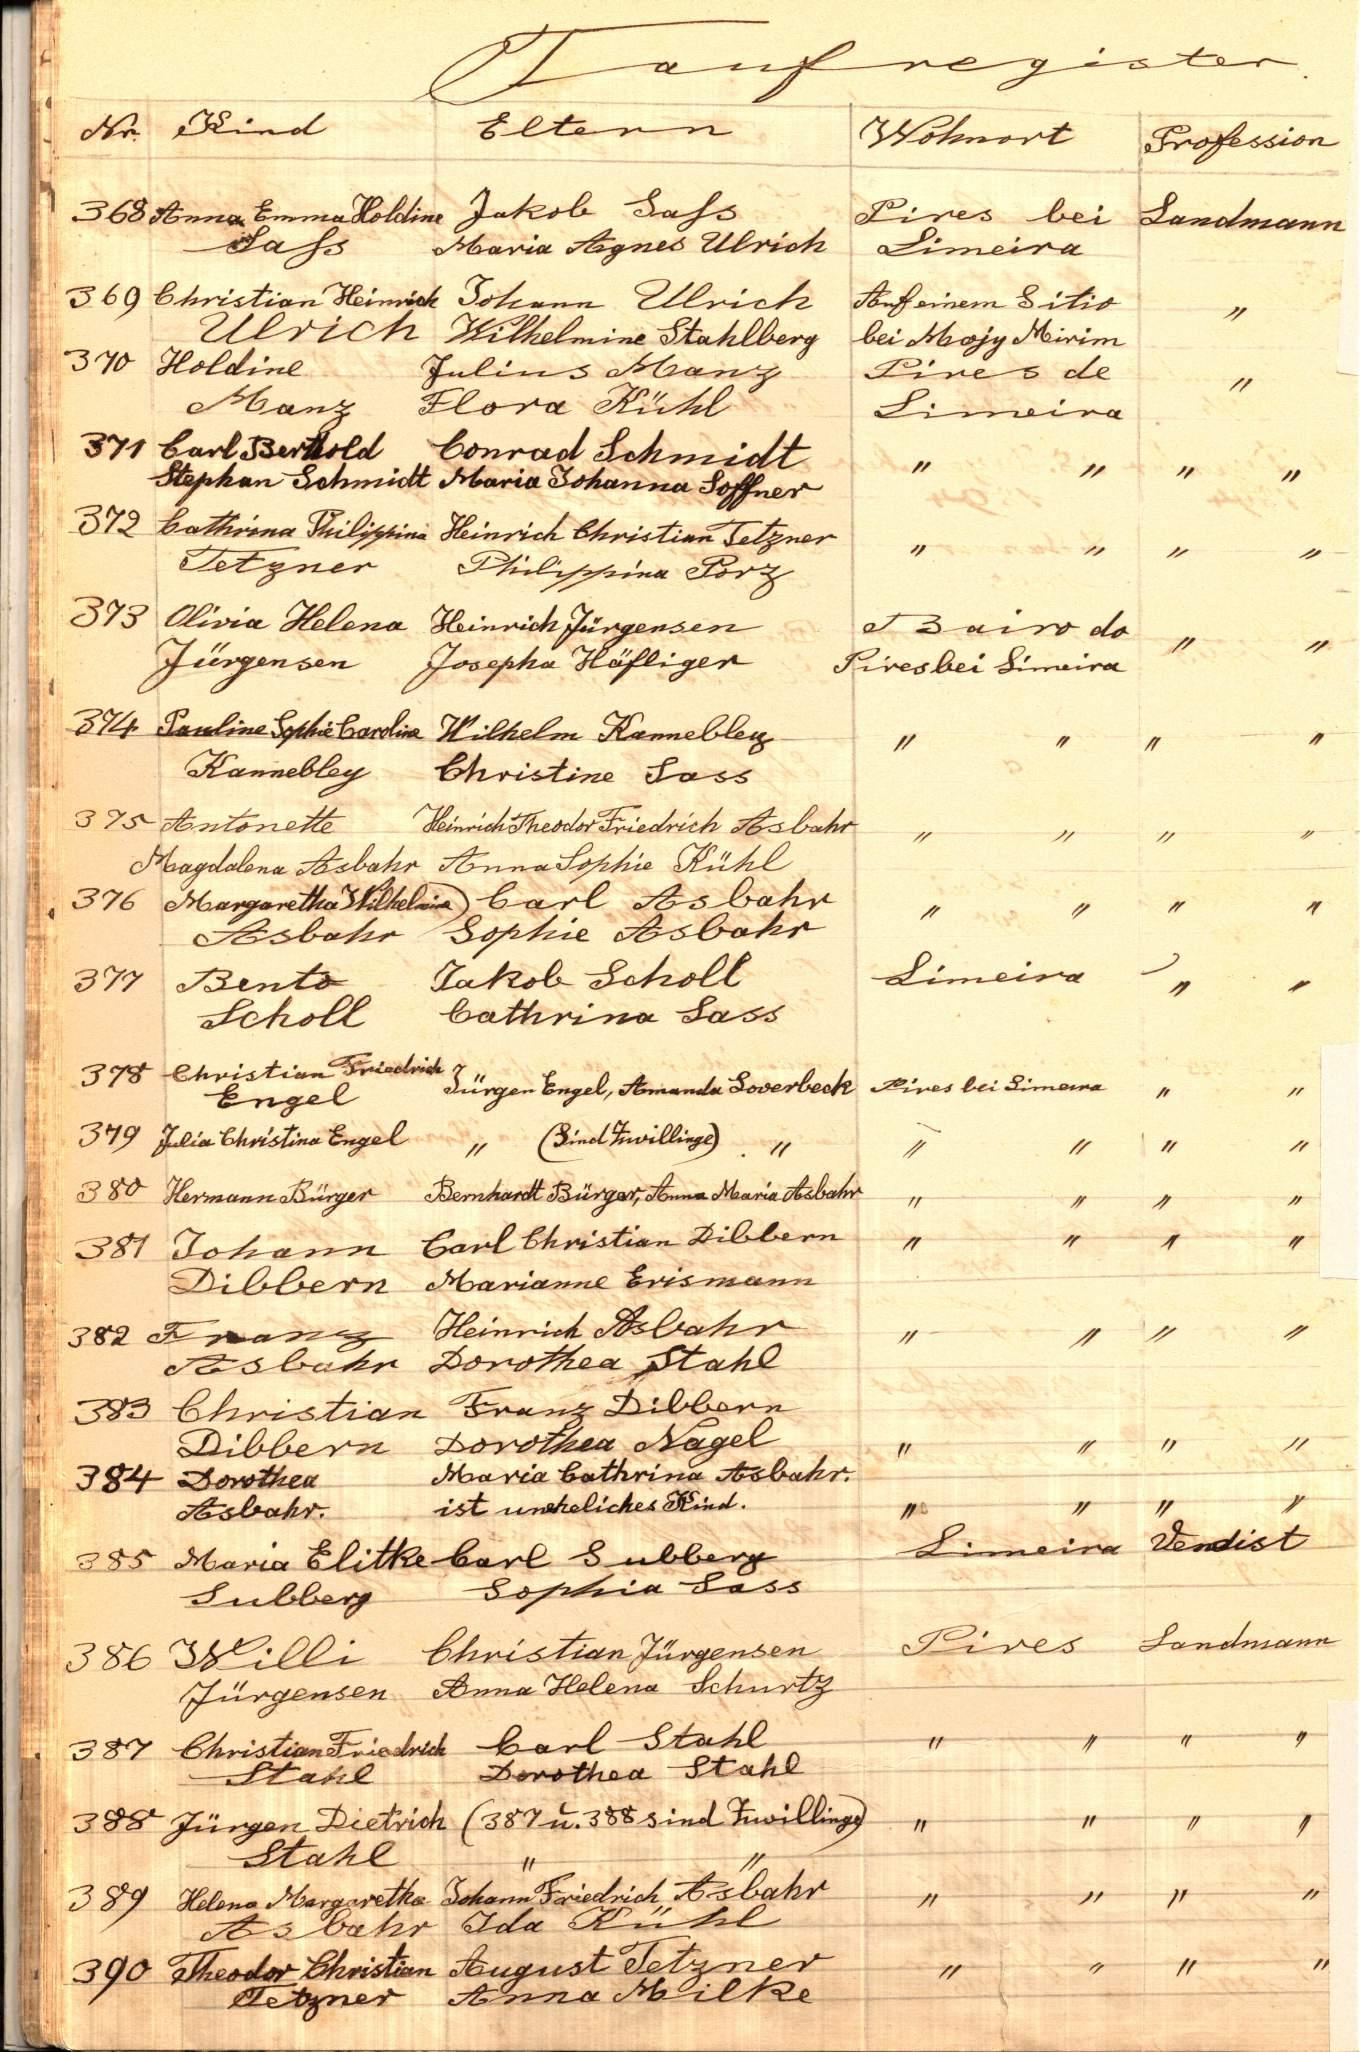 Taufregister.
Nr. Kind Eltern Wohnort Profession
368 Anna Emma Holdine Jakob Sass Pires bei Landmann
Sass Maria Agnes Ulrich Limeira
369 Christian Heinrich Johann Ulrich Auf einem Sitio "
Ulrich Wilhelmine Stahlberg bei Mojy Mirim
370 Holdine Julius Manz Pires de "
Manz Flora Kühl Limeira
371 Carl Berthold Conrad Schmidt " " " "
Stephan Schmidt Maria Johanna Soffner
372 Cathrina Philippina Heinrich Christian Tetzner " " " "
Tetzner Philippina Porz
373 Olivia Helena Heinrich Jürgensen Bairo do " "
Jürgensen Josepha Häfliger Pires bei Limeira
374 Pauline Sophie Caroline Wilhelm Kannebley " " " "
Kannebley Christine Sass
375 Antonette Heinrich Theodor Friedrich Asbahr " " " "
Magdalena Asbahr Anna Sophie Kühl
376 Margaretha Wilhelmine) Carl Asbahr " " " "
Asbahr Sophie Asbahr
377 Bento Jakob Scholl Limeira " "
Scholl Cathrina Sass
378 Christian Friedrich Jürgen Engel, Amanda Loverbeck Pires bei Limeira " "
Engel
379 Julia Christina Engel " (Sind Zwillinge) " " " " "
380 Hermann Bürger Bernhardt Bürger, Anna Maria Asbahr " " " "
381 Johann Carl Christian Dibbern " " " "
Dibbern Marianne Erismann
382 Franz Heinrich Asbahr " " " "
Asbahr Dorothea Stahl
383 Christian Franz Dibbern
Dibbern Dorothea Nagel " " " "
384 Dorothea Maria Cathrina Asbahr.
Asbahr. ist uneheliches Kind. " " " "
385 Maria Elitke Carl Subberg Limeira Vendist
Subberg Sophia Sass
386 Willi Christian Jürgensen Pires Landmann
Jürgensen Anna Helena Schurtz
387 Christian Friedrich Carl Stahl " " " "
Stahl Dorothea Stahl
388 Jürgen Dietrich (387 u. 388 sind Zwillinge) " " " "
Stahl " "
389 Helena Margaretha Johann Friedrich Asbahr " " " "
Asbahr Ida Kühl
390 Theodor Christian August Tetzner " " " "
Tetzner Anna Milke